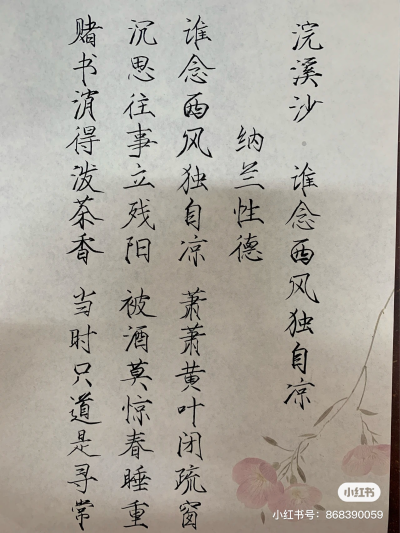 浣溪沙 谁念西风独自凉
纳兰性德
谁念西风独自凉 萧萧黄叶闭疏窗
沉思往事立残阳 被酒莫惊春睡重
赌书消得泼茶香 当时只道是寻常
小红书
小红书号：868390059